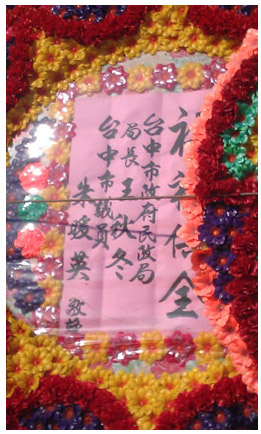 祝福俱全
台中市政府民政局
局長王秋冬
台中市議員
朱暖英 敬賀